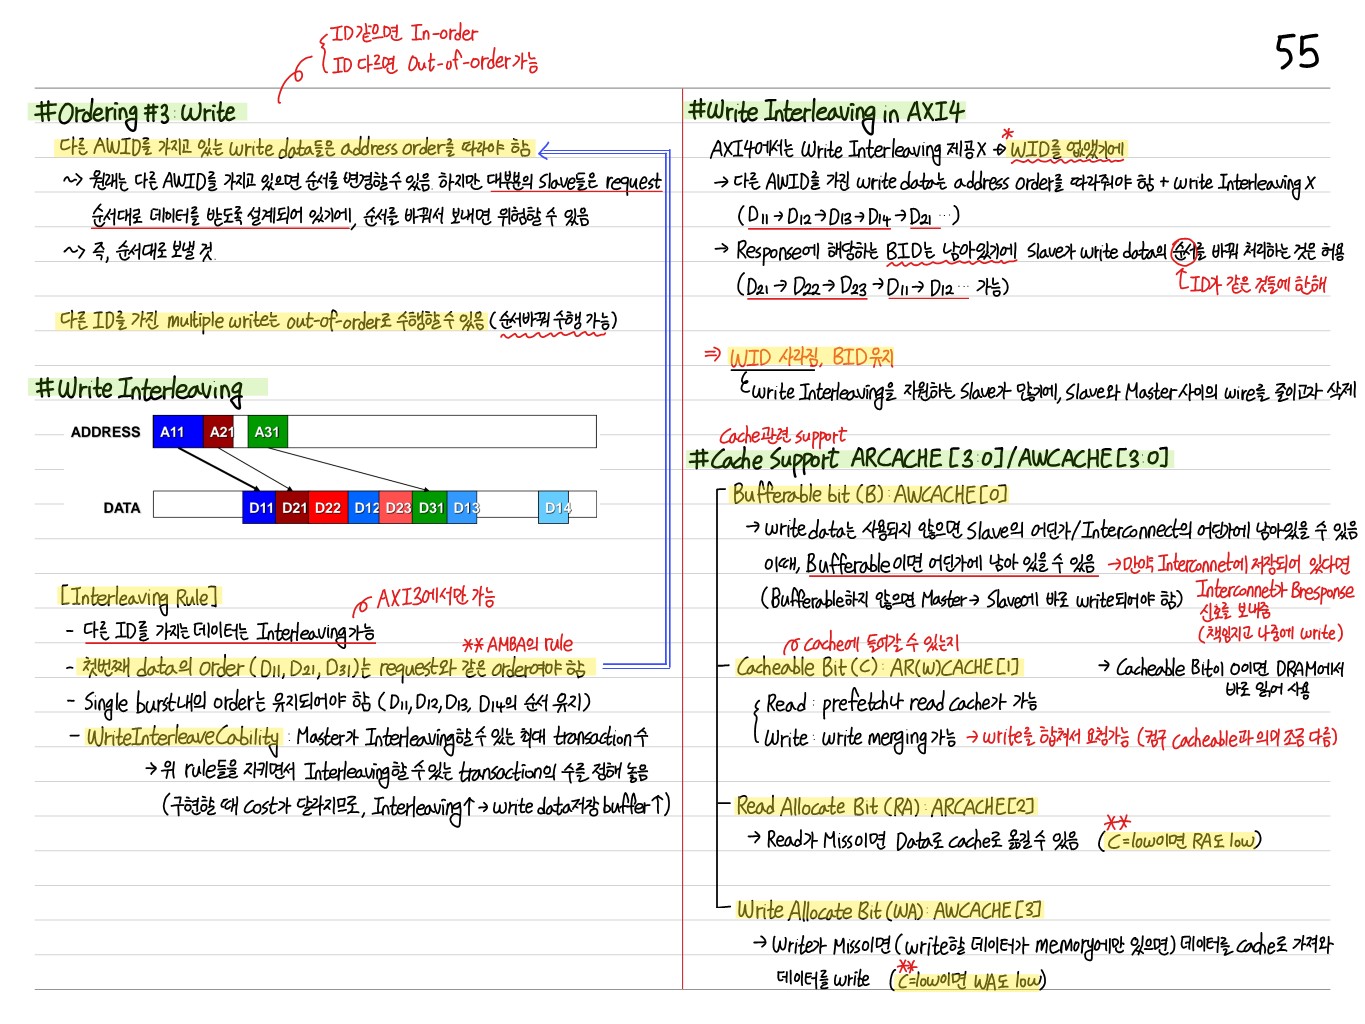 55
ID 같으면 In-order
ID 다르면 Out-of-order 가능
#Ordering #3: Write
다른 AWID를 가지고 있는 write data들은 address order를 따라야 함
~> 원래는 다른 AWID를 가지고 있으면 순서를 변경할 수 있음. 하지만, 대부분의 Slave들은 request
순서대로 데이터를 받도록 설계되어 있기에, 순서를 바꿔서 보내면 위험할 수 있음
~> 즉, 순서대로 보낼 것.
다른 ID를 가진 multiple write는 out-of-order로 수행할 수 있음 (순서바꿔 수행 가능)
#Write Interleaving
ADDRESS A11 A21 A31
DATA D11 D21 D22 D12 D23 D31 D13 D14
[Interleaving Rule]
AXI3에서만 가능
- 다른 ID를 가지는 데이터는 Interleaving 가능
** AMBA의 rule
- 첫번째 data의 order (D11, D21, D31)는 request와 같은 order여야 함
- Single burst내의 order는 유지되어야 함 (D11, D12, D13, D14의 순서 유지)
- WriteInterleaveCability : Master가 Interleaving할 수 있는 최대 transaction 수
→ 위 rule들을 지키면서 Interleaving할 수 있는 transaction의 수를 정해 놓음
(구현할 때 cost가 달라지므로, Interleaving↑ → write data저장 buffer↑)
#Write Interleaving in AXI4
AXI4에서는 Write Interleaving 제공X → * WID를 없앴기에
→ 다른 AWID를 가진 write data는 address order를 따라줘야 함 + write Interleaving X
(D11 → D12 → D13 → D14 → D21 ...)
→ Response에 해당하는 BID는 남아있기에 Slave가 write data의 순서를 바꿔 처리하는 것은 허용
(D21 → D22 → D23 → D11 → D12 ... 가능)
ID가 같은 것들에 한해
⇒ WID 사라짐, BID 유지
write Interleaving을 지원하는 Slave가 많기에, Slave와 Master 사이의 wire를 줄이고자 삭제
Cache관련 support
#Cache Support ARCACHE[3:0]/AWCACHE[3:0]
Bufferable bit (B) : AWCACHE[0]
→ write data는 사용되지 않으면 Slave의 어딘가/Interconnect의 어딘가에 남아있을 수 있음
이때, Bufferable이면 어딘가에 남아 있을 수 있음 → 만약 Interconnet에 저장되어 있다면
Interconnet가 Bresponse
신호를 보내줌
(책임지고 나중에 write)
(Bufferable하지 않으면 Master → Slave에 바로 write되어야 함)
cache에 들어갈 수 있는지
Cacheable Bit (C) : AR(W)CACHE[1]
→ Cacheable Bit이 0이면 DRAM에서
바로 읽어 사용
Read : prefetch나 read cache가 가능
Write : write merging 가능 → write를 합쳐서 요청가능 (컴구 cacheable과 의미 조금 다름)
Read Allocate Bit (RA) : ARCACHE[2]
→ Read가 Miss이면 Data로 cache로 옮길 수 있음 (** C=low이면 RA도 low)
Write Allocate Bit (WA) : AWCACHE[3]
→ Write가 Miss이면 (write할 데이터가 memory에만 있으면) 데이터를 cache로 가져와
데이터를 write (** C=low이면 WA도 low)